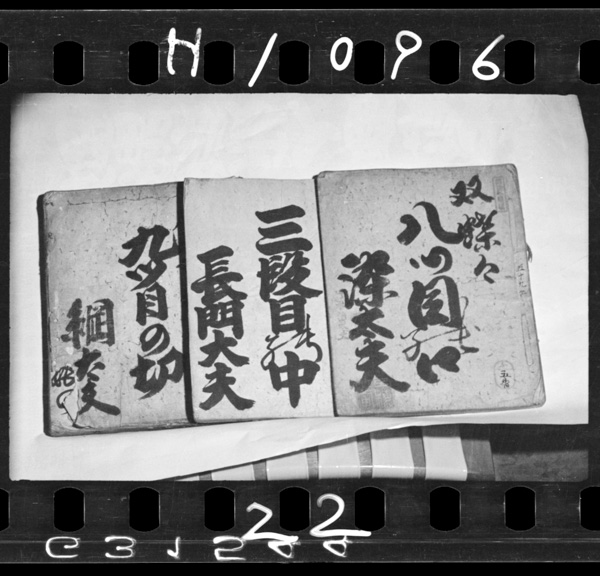 H/096
双蝶々
八ツ目口
染太夫
三段目
中
長門大夫
九ツ目の切
綱太夫
22